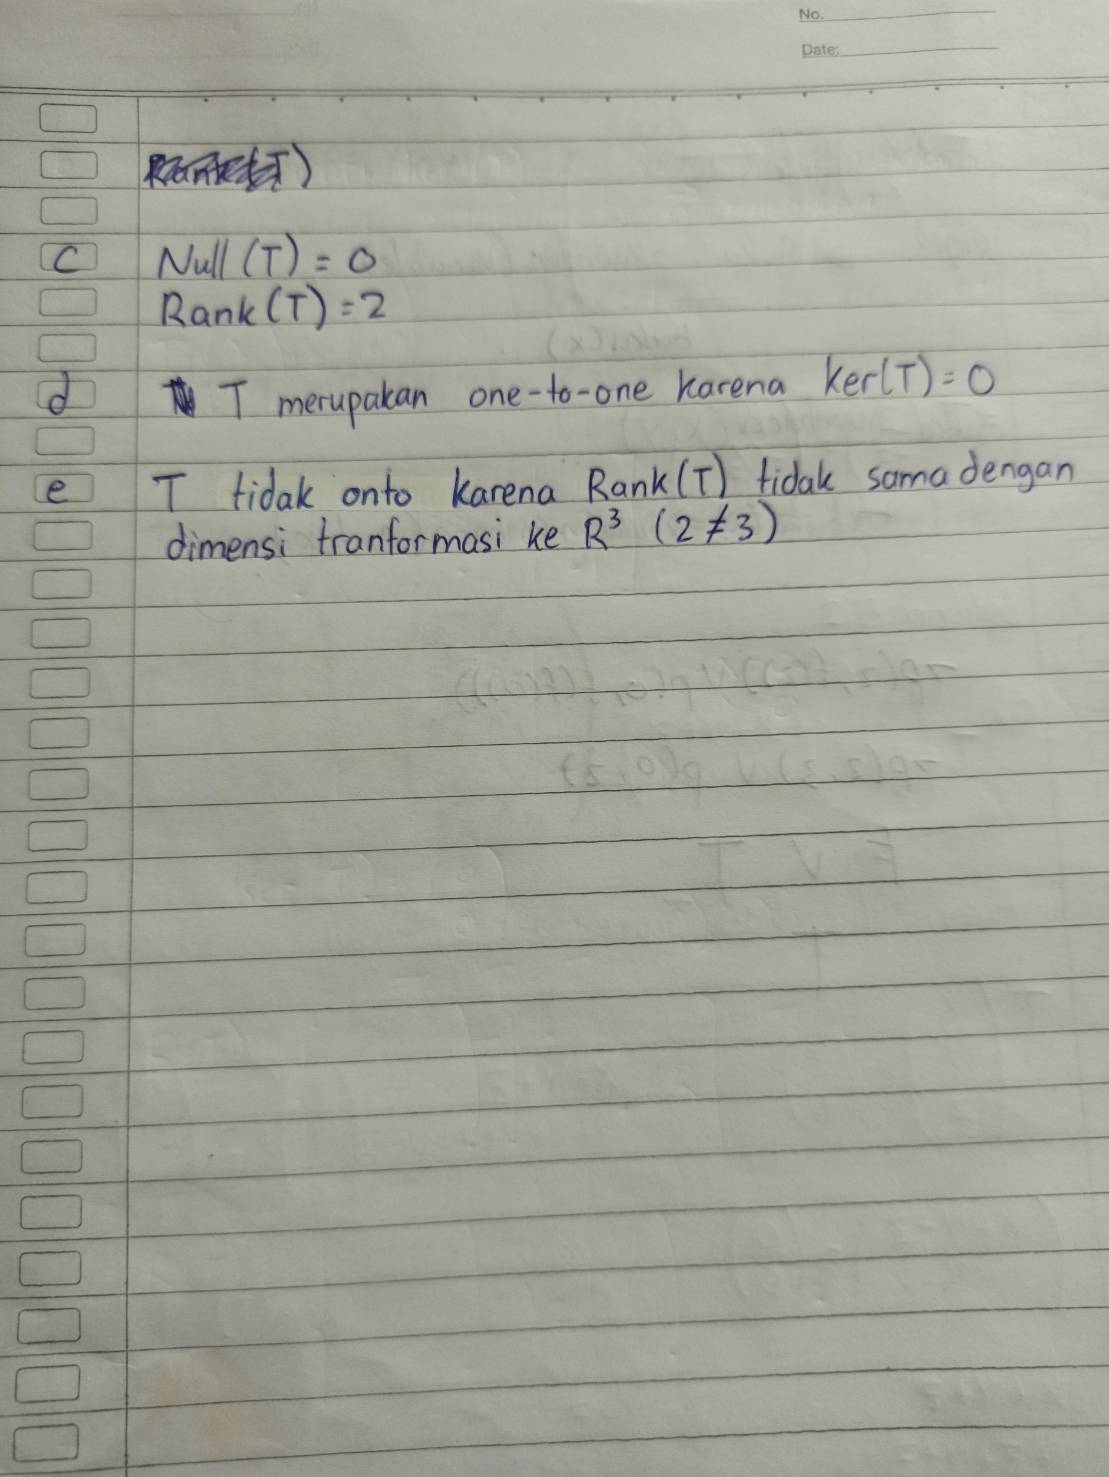 No.
Date:
c Null (T) = 0
Rank (T) = 2
d T merupakan one-to-one karena Ker(T) = 0
e T tidak onto karena Rank (T) tidak sama dengan
dimensi tranformasi ke R³ (2 ≠ 3)